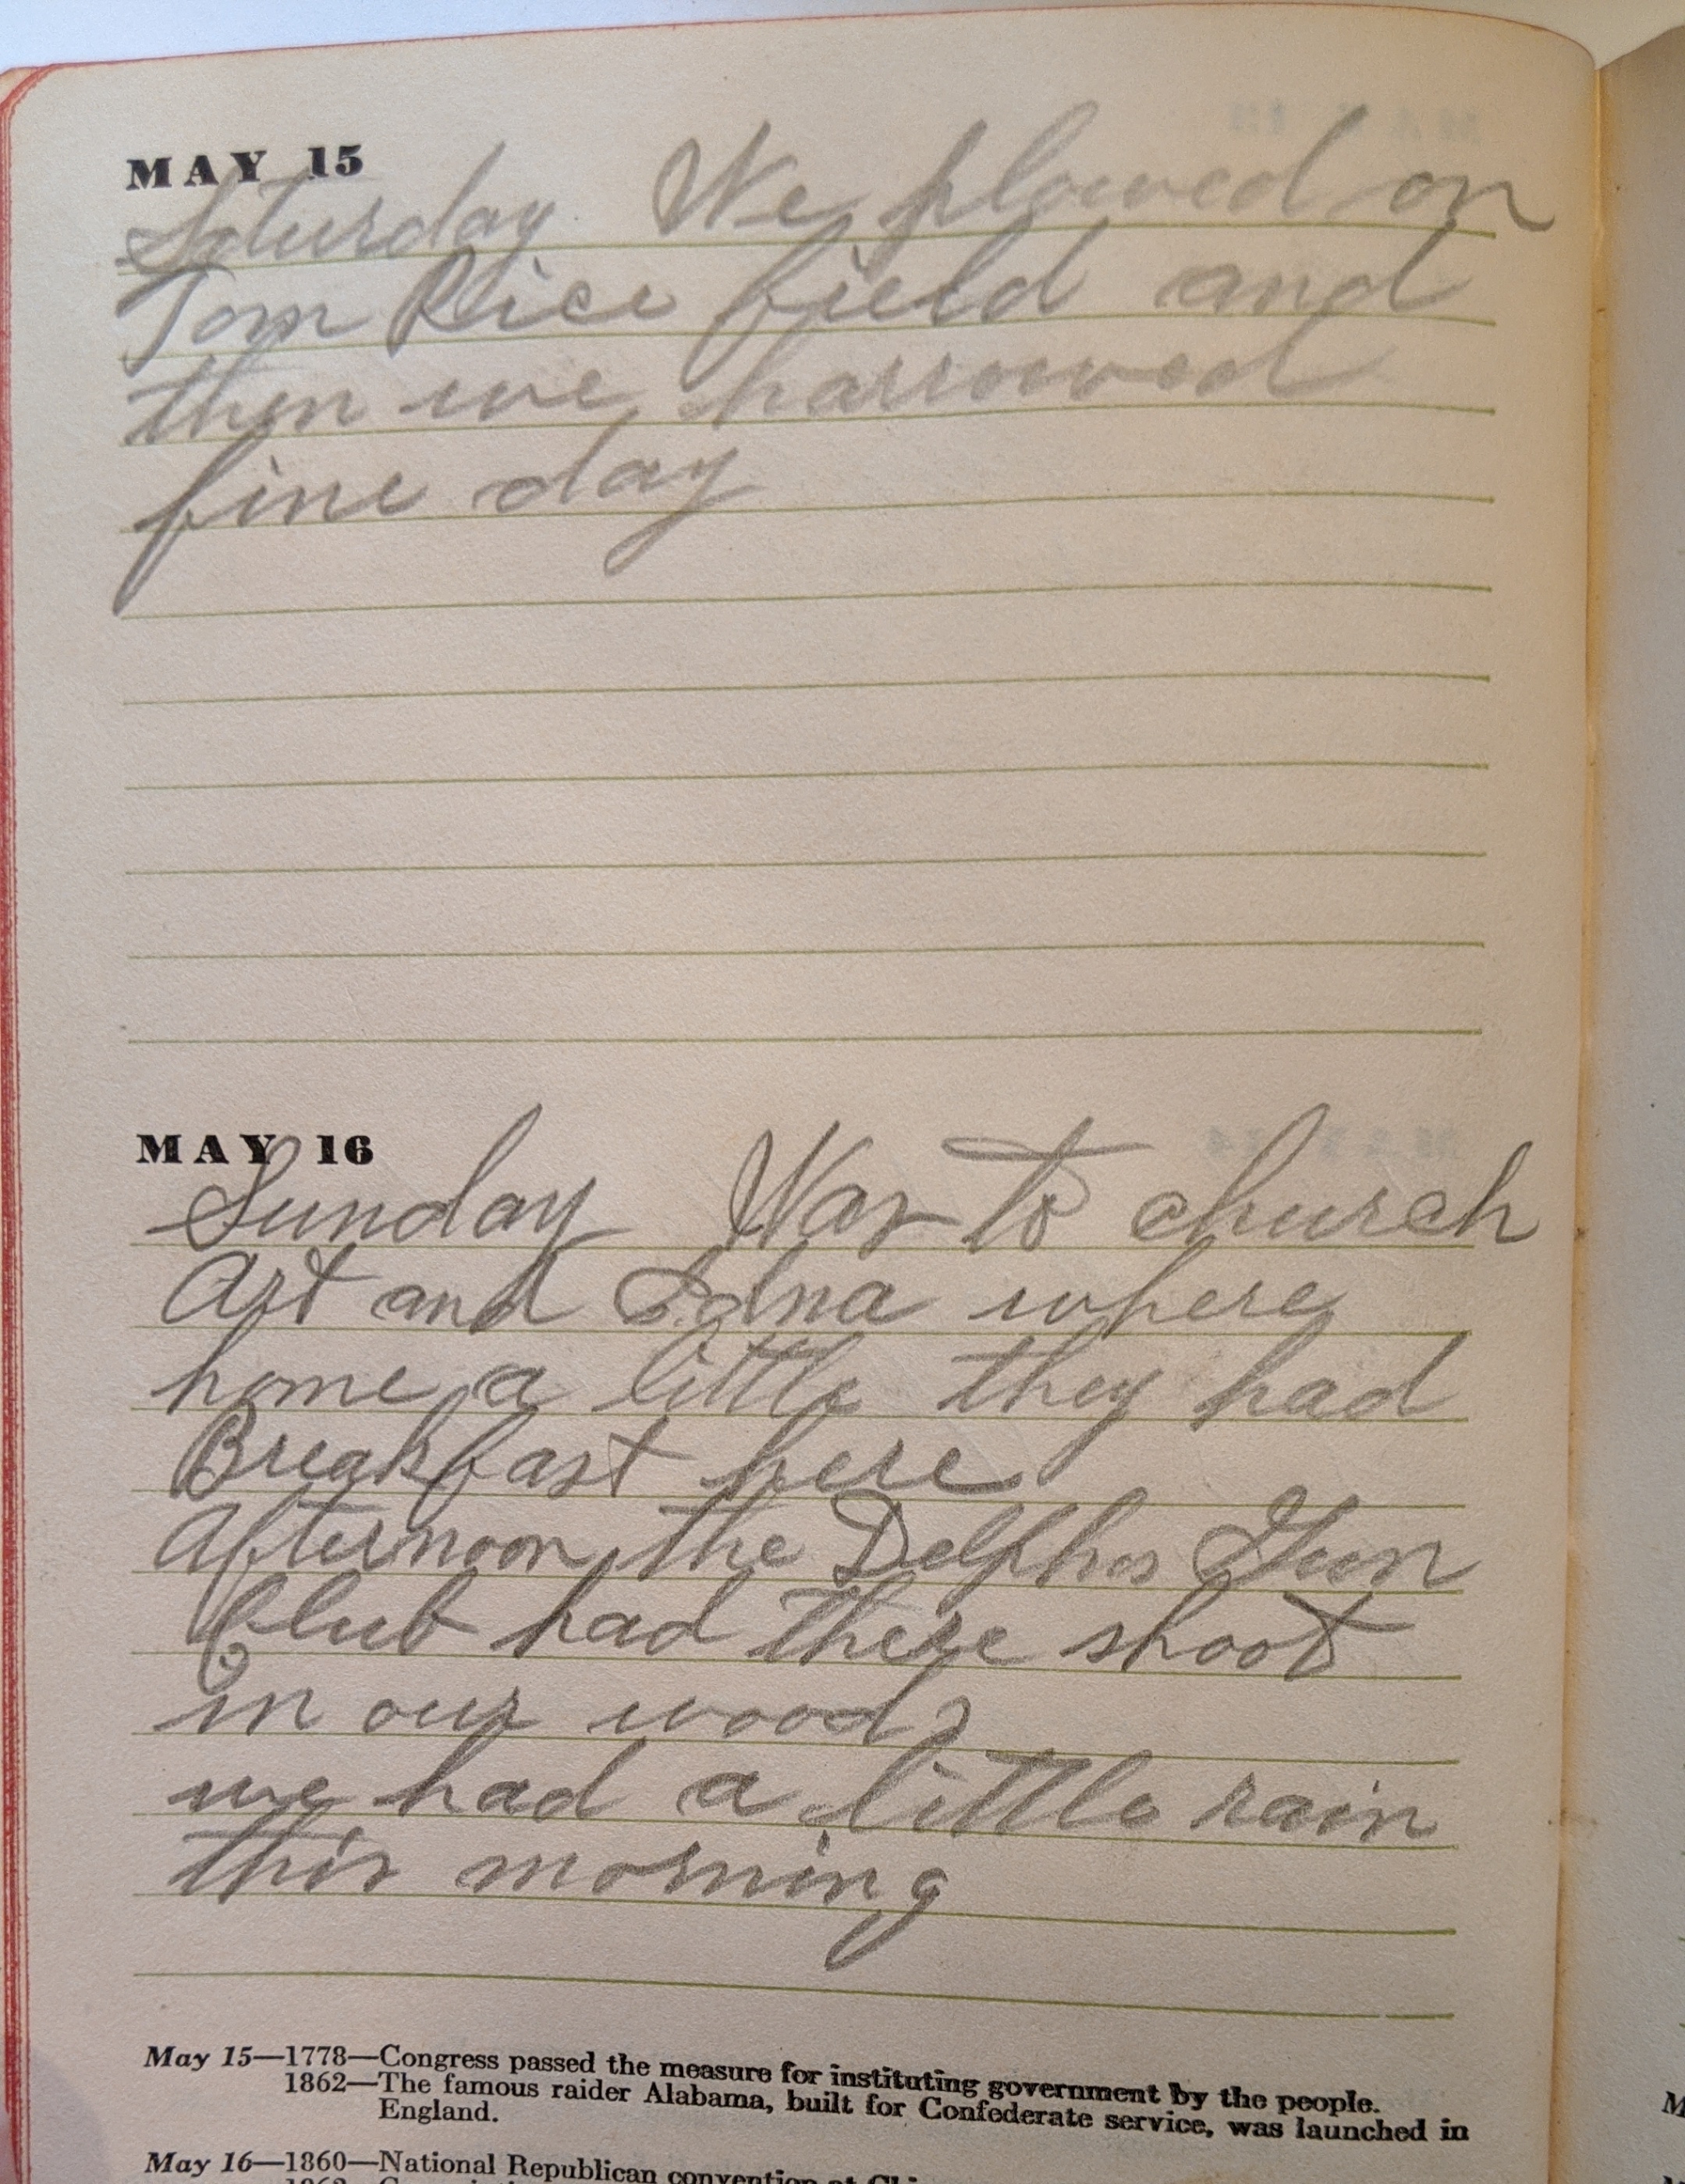 MAY 15
Saturday We plowed on
Tom Rice field and
then we harrowed
fine day
MAY 16
Sunday Was to church
Art and Edna where
home a little they had
Breakfast here
Afternoon the Delphos Gun
Club had there shoot
in our woods
we had a little rain
this morning
May 15—1778—Congress passed the measure for instituting government by the people.
1862—The famous raider Alabama, built for Confederate service, was launched in
England.
May 16—1860—National Republican convention at